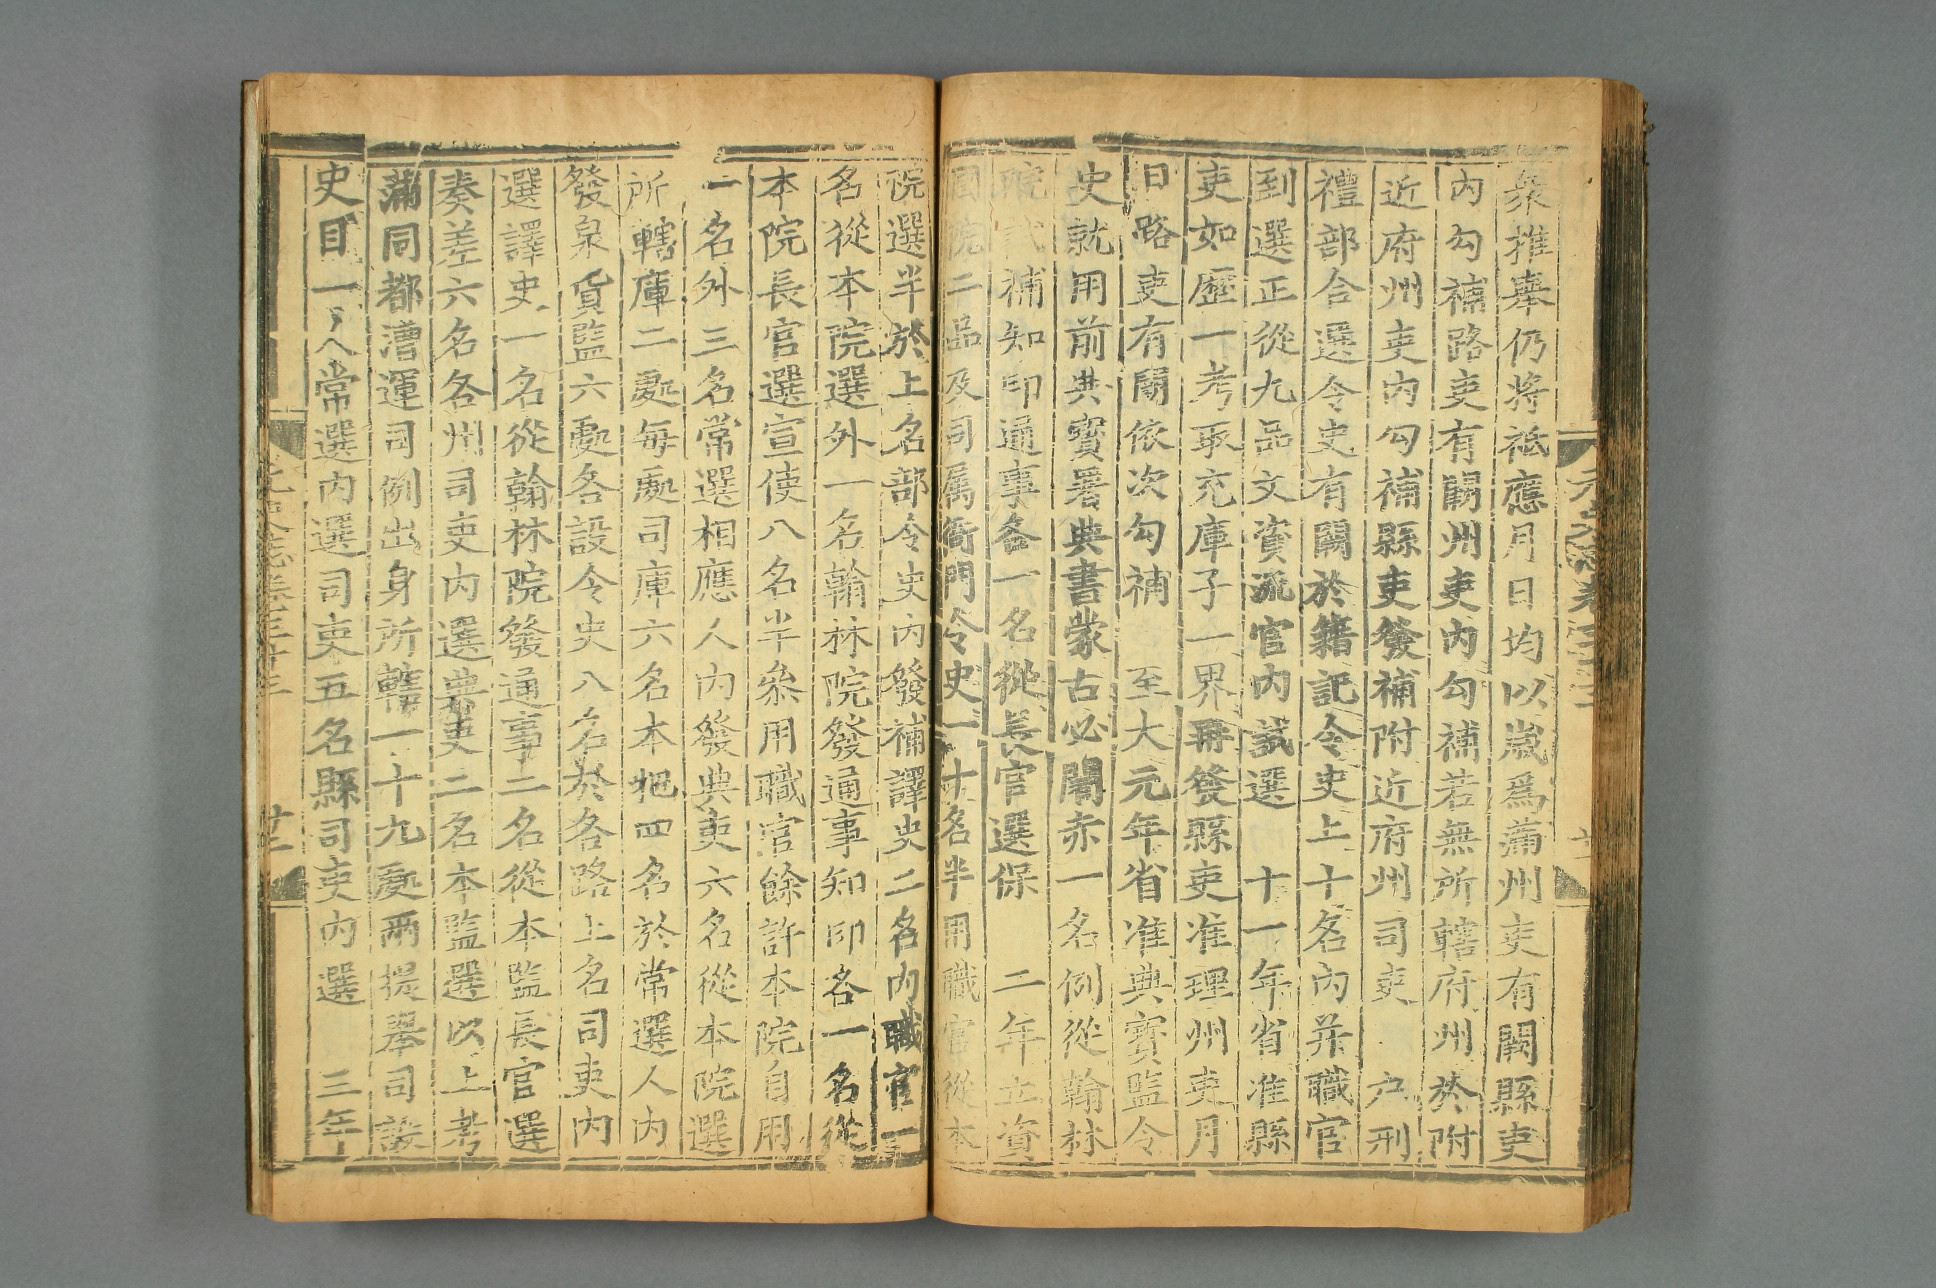 衆推舉仍將祗應月日均以歲爲滿州吏有闕縣吏
內勾補路吏有闕州吏內勾補若無所轄府州於附
近府州吏內勾補縣吏發補附近府州司吏 戶刑
禮部合選令史有闕於籍記令史上十名內并職官
到選正從九品文資流官內試選 十一年省准縣
吏如歷一考取充庫子一界再發縣吏准理州吏月
日路吏有闕依次勾補 至大元年省准典寶監令
史就用前典寶署典書蒙古必闍赤一名例從翰林
院試補知印通事各一名從長官選保 二年立資
國院二品及同屬衙門令史一十名半用職官從本
院選半於上名部令史內發補譯史二名內職官一
名從本院選外一名翰林院發通事知印各一名從
本院長官選宣使八名半㕘用職官餘許本院自用
一名外三名常選相應人內發典吏六名從本院選
所轄庫二處每處司庫六名本把四名於常選人內
發泉貨監六處各設令史八名於各路上名司吏內
選譯史一名從翰林院發通事二名從本監長官選
奏差六名各州司吏內選典吏二名本監選以上考
滿同都漕運司例出身所轄一十九處兩提舉司設
吏目一人常選內選司吏五名縣司吏內選 三年
元史志卷三十三 廿二